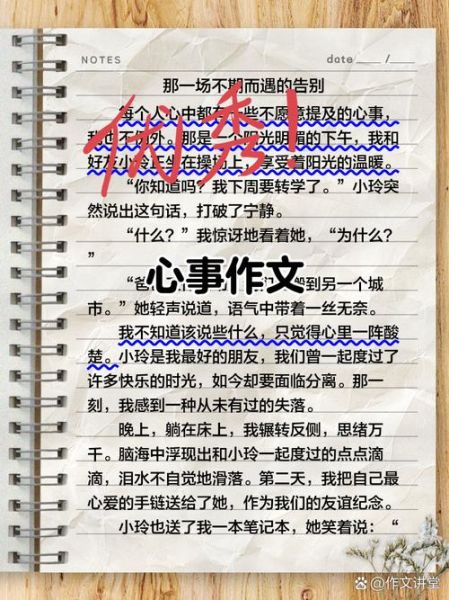 NOTES
date ____ /____
那一场不期而遇的告别
每个人心中都有一些不愿意提及的心事，
我也不例外。那是一个阳光明媚的下午，我和
好友小玲正坐在操场上，享受着阳光的温暖。
优秀！
“你知道吗？我下周要转学了。”小玲突
然说出这句话，打破了宁静。
“什么？”我惊讶地看着她，“为什么？
”
心事作文
“爸 搬到另一个城
市。”她轻声说道，语气中带着一丝无奈。
我不知道该说些什么，只觉得心里一阵酸
楚。小玲是我最好的朋友，我们曾一起度过了
许多快乐的时光，如今却要面临分离。那一
刻，我感到一种从未有过的失落。
晚上，躺在床上，我辗转反侧，思绪万
千。脑海中浮现出和小玲一起度过的点点滴
滴，泪水不自觉地滑落。第二天，我把自己最
心爱的手链送给了她，作为我们的友谊纪念。
小玲也送了我一本笔记本，她笑着说：“
@作文讲堂